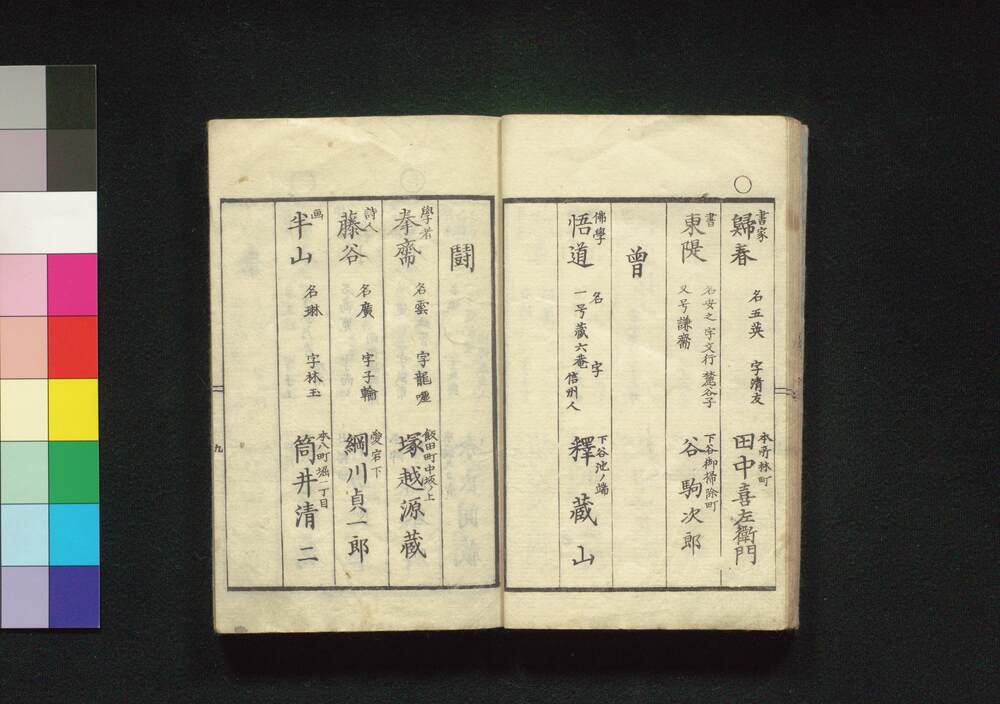 書家
歸春 名五英 字清友
本所林町
田中喜左衛門
書
東隄 名安之 字文行 麓谷子
又号謙齋
下谷御掃除町
谷駒次郎
曽
佛學
悟道 名 字
一号蔵六菴 信州人
下谷池ノ端
釋蔵山
鬪
學者
奉齋 名雲 字龍
飯田町中坂ノ上
塚越源蔵
詩人
藤谷 名廣 字子輪
愛宕下
綱川貞一郎
画
半山 名琳 字林玉
本八町堀一丁目
筒井清二
九